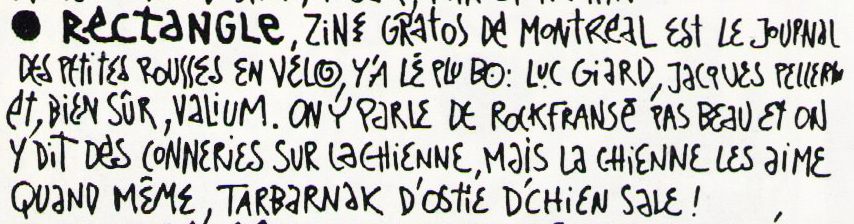 ● RECTANGLE, ZINE GRATOS DE MONTREAL EST LE JOURNAL
DES PETITES ROUSSES EN VELO, Y'A LÉ PLU BO: LUC GIARD, JACQUES PELLERIN
ET, BIEN SÛR, VALIUM. ON Y PARLE DE ROCKFRANSE PAS BEAU ET ON
Y DIT DES CONNERIES SUR LACHIENNE, MAIS LA CHIENNE LES AIME
QUAND MÊME, TARBARNAK D'OSTIE D'CHIEN SALE !